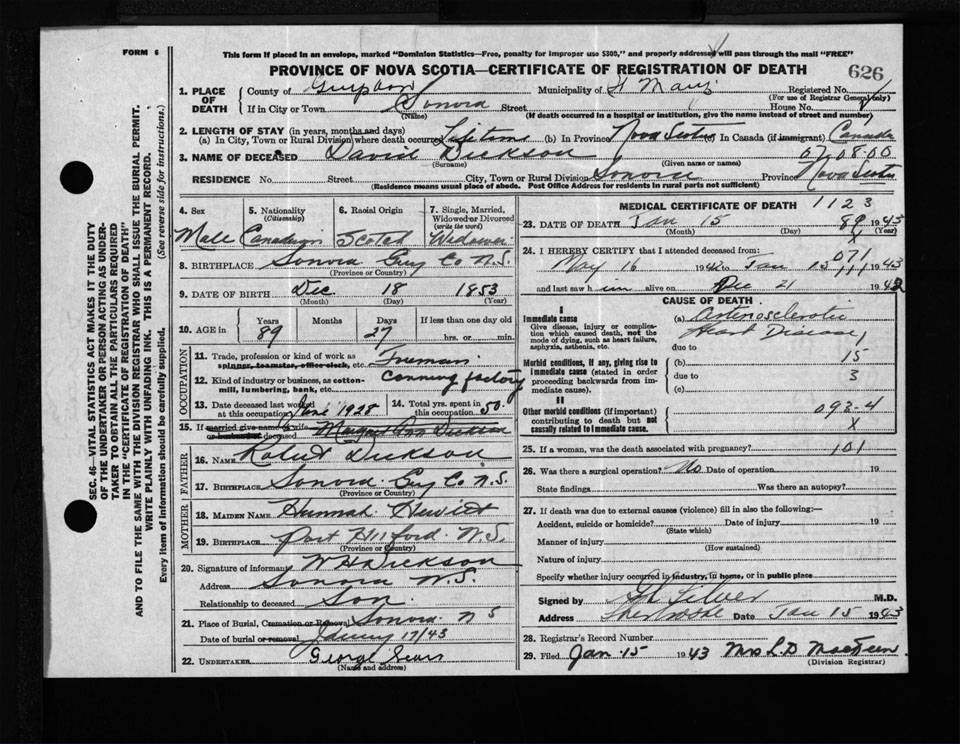 FORM 6
This form if placed in an envelope, marked "Dominion Statistics—Free, penalty for improper use $300," and properly addressed will pass through the mail "FREE"
PROVINCE OF NOVA SCOTIA—CERTIFICATE OF REGISTRATION OF DEATH
626
SEC. 46—VITAL STATISTICS ACT MAKES IT THE DUTY
OF THE UNDERTAKER OR PERSON ACTING AS UNDER-
TAKER TO OBTAIN ALL THE PARTICULARS REQUIRED
IN THE "CERTIFICATE OF REGISTRATION OF DEATH"
AND TO FILE THE SAME WITH THE DIVISION REGISTRAR WHO SHALL ISSUE THE BURIAL PERMIT.
WRITE PLAINLY WITH UNFADING INK. THIS IS A PERMANENT RECORD.
Every item of information should be carefully supplied. (See reverse side for instructions.)
1. PLACE OF DEATH County of Guysboro Municipality of St Marys Registered No.
(For use of Registrar General only)
If in City or Town Sonora Street House No.
(Name) (If death occurred in a hospital or institution, give the name instead of street and number)
2. LENGTH OF STAY (in years, months and days)
(a) In City, Town or Rural Division where death occurred Lifetime (b) In Province Nova Scotia In Canada (if immigrant) Canada
3. NAME OF DECEASED David Dickson 07 08.00
(Surname) (Given name or names)
RESIDENCE No. Street City, Town or Rural Division Sonora Province Nova Scotia
(Residence means usual place of abode. Post Office Address for residents in rural parts not sufficient)
4. Sex Male
5. Nationality (Citizenship) Canadian
6. Racial Origin Scotch
7. Single, Married, Widowed or Divorced (write the word) Widower
8. BIRTHPLACE Sonora Guy Co N.S.
(Province or Country)
9. DATE OF BIRTH Dec 18 1853
(Month) (Day) (Year)
10. AGE in Years 89 Months Days 27 If less than one day old hrs. or min.
OCCUPATION
11. Trade, profession or kind of work as spinner, teamster, office clerk, etc. Foreman
12. Kind of industry or business, as cotton-mill, lumbering, bank, etc. Canning factory
13. Date deceased last worked at this occupation June 1928
14. Total yrs. spent in this occupation 50
15. If married give name of wife or husband of deceased Margret Ann Dickson
FATHER
16. NAME Robert Dickson
17. BIRTHPLACE Sonora Guy Co N.S.
(Province or Country)
MOTHER
18. MAIDEN NAME Hannah Hewitt
19. BIRTHPLACE Port Hilford N.S.
(Province or Country)
20. Signature of informant W H Dickson
Address Sonora N.S.
Relationship to deceased Son
21. Place of Burial, Cremation or Removal Sonora N S
Date of burial or removal 17/43
22. UNDERTAKER George Sears
(Name and address)
MEDICAL CERTIFICATE OF DEATH 1123
23. DATE OF DEATH Jan 15 89 1943
(Month) (Day) (Year)
X
24. I HEREBY CERTIFY that I attended deceased from: 071
May 16 1942 to Jan 15 1943
and last saw him alive on Dec 21 1942
CAUSE OF DEATH
I
Immediate cause
Give disease, injury or complication which caused death, not the mode of dying, such as heart failure, asphyxia, asthenia, etc.
(a) Arteriosclerotic
Heart Disease
due to 1
Morbid conditions, if any, giving rise to immediate cause (stated in order proceeding backwards from immediate cause).
(b) 15
due to 3
(c)
II
Other morbid conditions (if important) contributing to death but not causally related to immediate cause.
093-4
X
25. If a woman, was the death associated with pregnancy? 101
26. Was there a surgical operation? No Date of operation 19
State findings Was there an autopsy?
27. If death was due to external causes (violence) fill in also the following:—
Accident, suicide or homicide? Date of injury 19
(State which)
Manner of injury
(How sustained)
Nature of injury
Specify whether injury occurred in industry, in home, or in public place
Signed by Silver M.D.
Address Sherbrooke Date Jan 15 1943
28. Registrar's Record Number
29. Filed Jan. 15 1943 Mrs L.D. MacKeen
(Division Registrar)